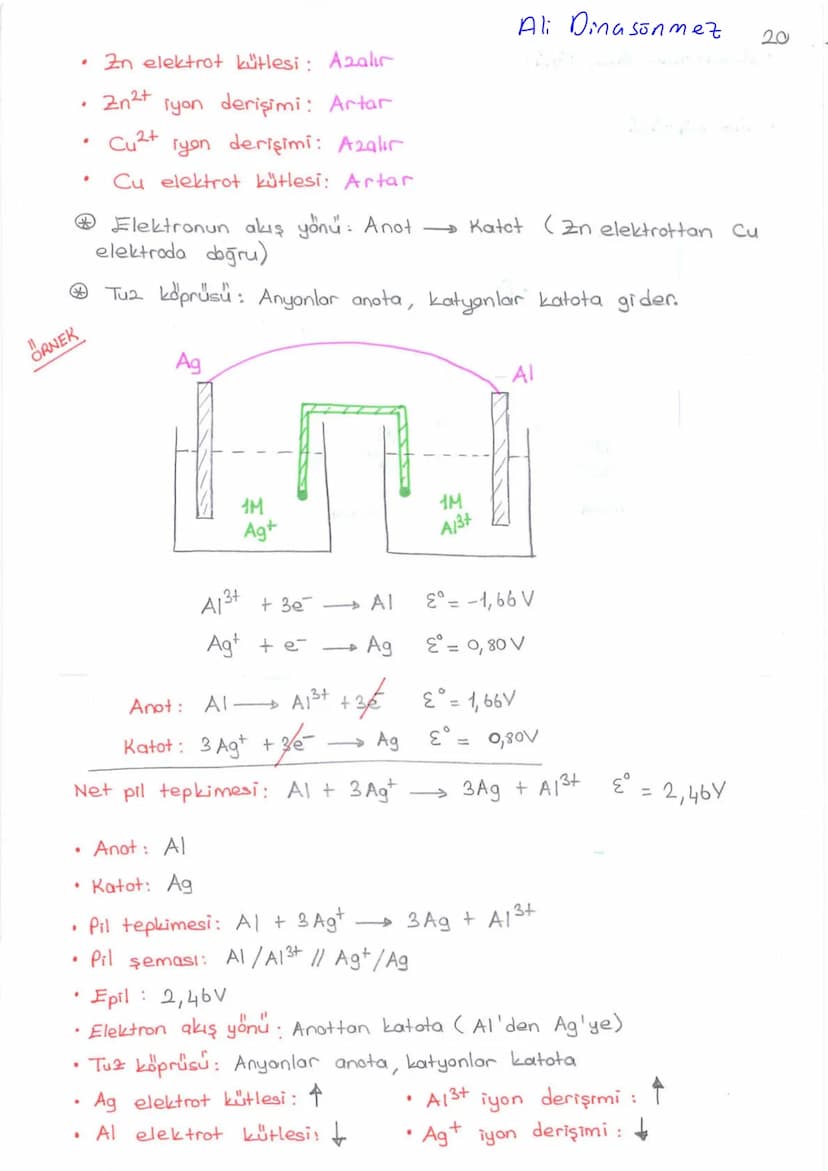 Ali Dinasönmez
20
• Zn elektrot kütlesi : Azalır
• Zn²⁺ iyon derişimi : Artar
• Cu²⁺ iyon derişimi : Azalır
• Cu elektrot kütlesi : Artar
⊛ Elektronun akış yönü : Anot → Katot ( Zn elektrottan Cu
elektroda doğru)
⊛ Tuz köprüsü : Anyonlar anota, katyonlar katota gider.
ÖRNEK
Ag
Al
1M
Ag⁺
1M
Al³⁺
Al³⁺ + 3e⁻ → Al ε° = -1,66 V
Ag⁺ + e⁻ → Ag ε° = 0,80 V
Anot : Al → Al³⁺ + 3e⁻ ε° = 1,66V
Katot : 3 Ag⁺ + 3e⁻ → Ag ε° = 0,80V
Net pil tepkimesi : Al + 3 Ag⁺ → 3Ag + Al³⁺ ε° = 2,46V
• Anot : Al
• Katot : Ag
• Pil tepkimesi : Al + 3 Ag⁺ → 3 Ag + Al³⁺
• Pil şeması : Al / Al³⁺ // Ag⁺/Ag
• Epil : 2,46V
• Elektron akış yönü : Anottan katota ( Al'den Ag'ye)
• Tuz köprüsü : Anyonlar anota, katyonlar katota
• Ag elektrot kütlesi : ↑ • Al³⁺ iyon derişimi : ↑
• Al elektrot kütlesi : ↓ • Ag⁺ iyon derişimi : ↓